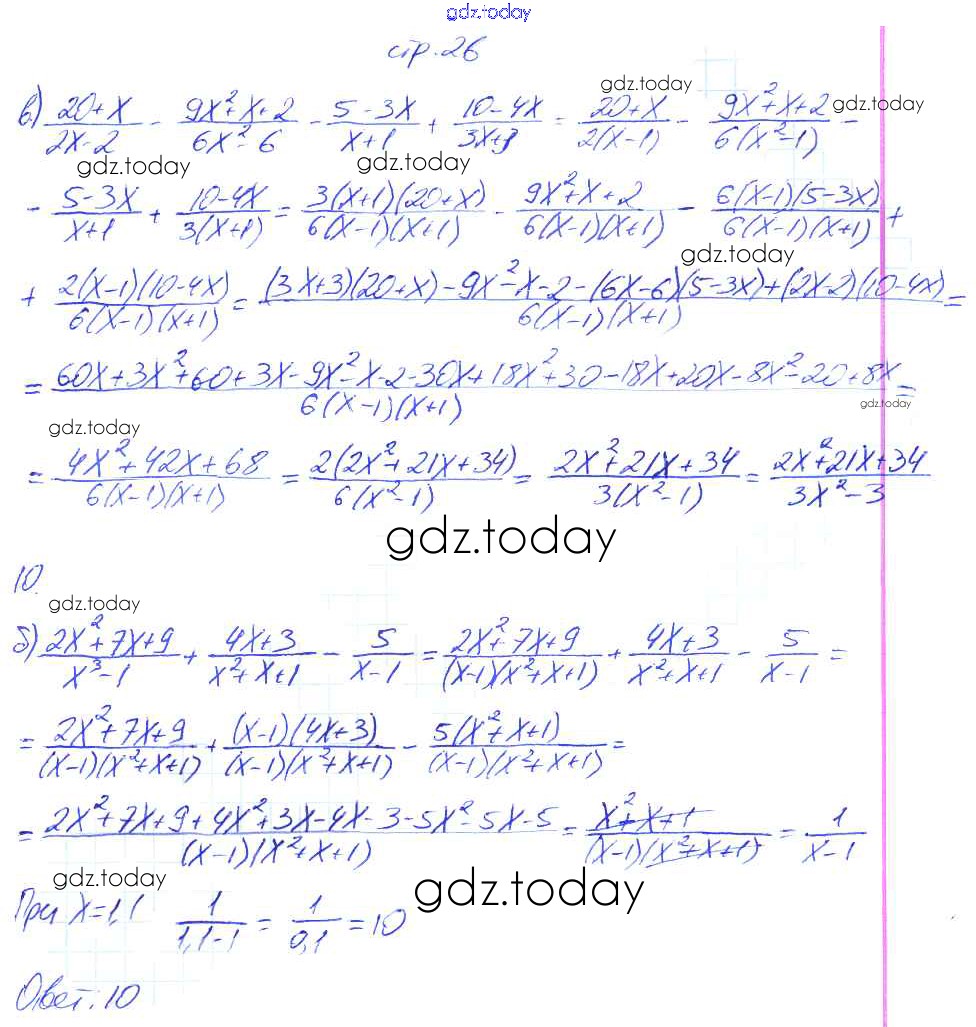 gdz.today
стр. 26
gdz.today
в) (20+x)/(2x-2) - (9x²+x+2)/(6x²-6) - (5-3x)/(x+1) + (10-4x)/(3x+3) = (20+x)/(2(x-1)) - (9x²+x+2)/(6(x²-1)) -
gdz.today
gdz.today gdz.today
- (5-3x)/(x+1) + (10-4x)/(3(x+1)) = (3(x+1)(20+x))/(6(x-1)(x+1)) - (9x²+x+2)/(6(x-1)(x+1)) - (6(x-1)(5-3x))/(6(x-1)(x+1)) +
gdz.today
+ (2(x-1)(10-4x))/(6(x-1)(x+1)) = ((3x+3)(20+x)-9x²-x-2-(6x-6)(5-3x)+(2x-2)(10-4x))/(6(x-1)(x+1)) =
= (60x+3x²+60+3x-9x²-x-2-30x+18x²+30-18x+20x-8x²-20+8x)/(6(x-1)(x+1)) =
gdz.today
gdz.today
= (4x²+42x+68)/(6(x-1)(x+1)) = (2(2x²+21x+34))/(6(x²-1)) = (2x²+21x+34)/(3(x²-1)) = (2x²+21x+34)/(3x²-3)
gdz.today
10.
gdz.today
б) (2x²+7x+9)/(x³-1) + (4x+3)/(x²+x+1) - 5/(x-1) = (2x²+7x+9)/((x-1)(x²+x+1)) + (4x+3)/(x²+x+1) - 5/(x-1) =
= (2x²+7x+9)/((x-1)(x²+x+1)) + ((x-1)(4x+3))/((x-1)(x²+x+1)) - (5(x²+x+1))/((x-1)(x²+x+1)) =
= (2x²+7x+9+4x²+3x-4x-3-5x²-5x-5)/((x-1)(x²+x+1)) = (x²+x+1)/((x-1)(x²+x+1)) = 1/(x-1)
gdz.today
gdz.today
При x=1,1 1/(1,1-1) = 1/0,1 = 10
Ответ: 10